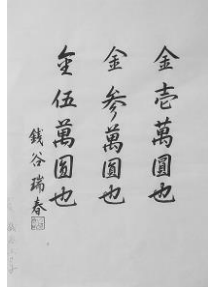 金壱萬圓也
金参萬圓也
金伍萬圆也
錢谷瑞春